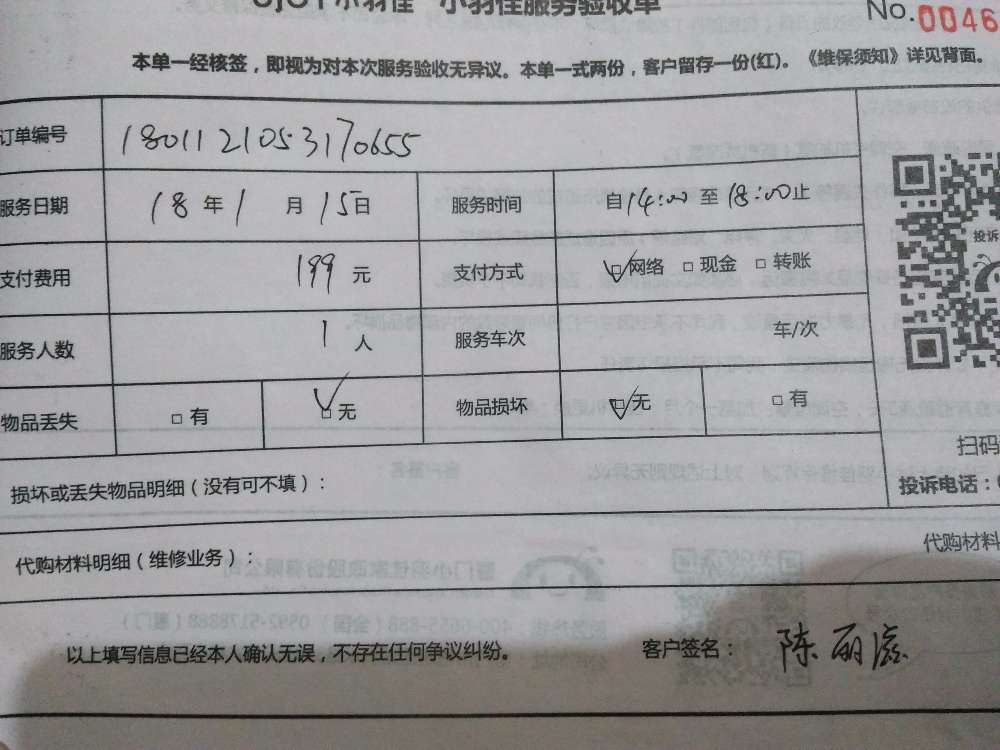 小羽佳服务验收单
No.0046
本单一经核签，即视为对本次服务验收无异议。本单一式两份，客户留存一份(红)。《维保须知》详见背面。
订单编号 1801121053170655
服务日期 18年1月15日 服务时间 自14:00至18:00止
投诉
支付费用 199元 支付方式 ☑网络 □现金 □转账
服务人数 1人 服务车次 车/次
物品丢失 □有 ☑无 物品损坏 ☑无 □有
扫码
损坏或丢失物品明细（没有可不填）：
投诉电话：
代购材料明细（维修业务）： 代购材料
以上填写信息已经本人确认无误，不存在任何争议纠纷。 客户签名：陈丽滋